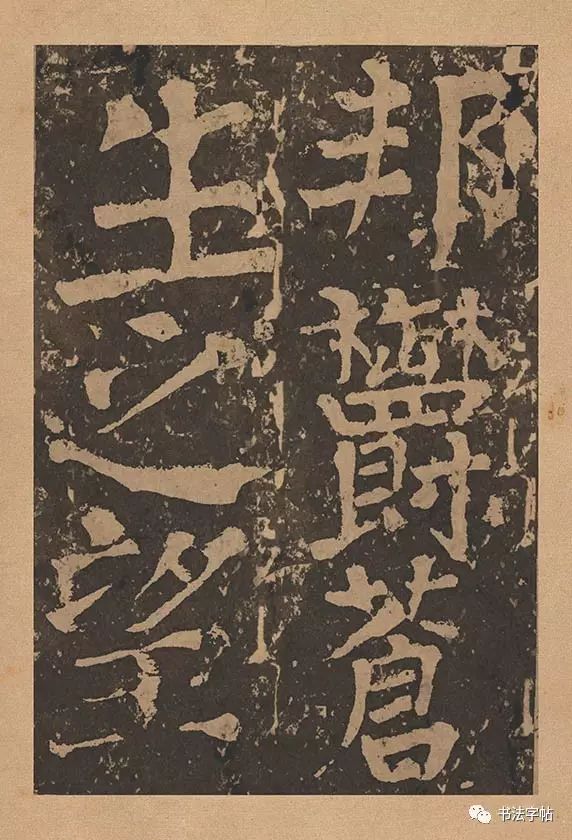 邦鬱蒼
生之望
书法字帖